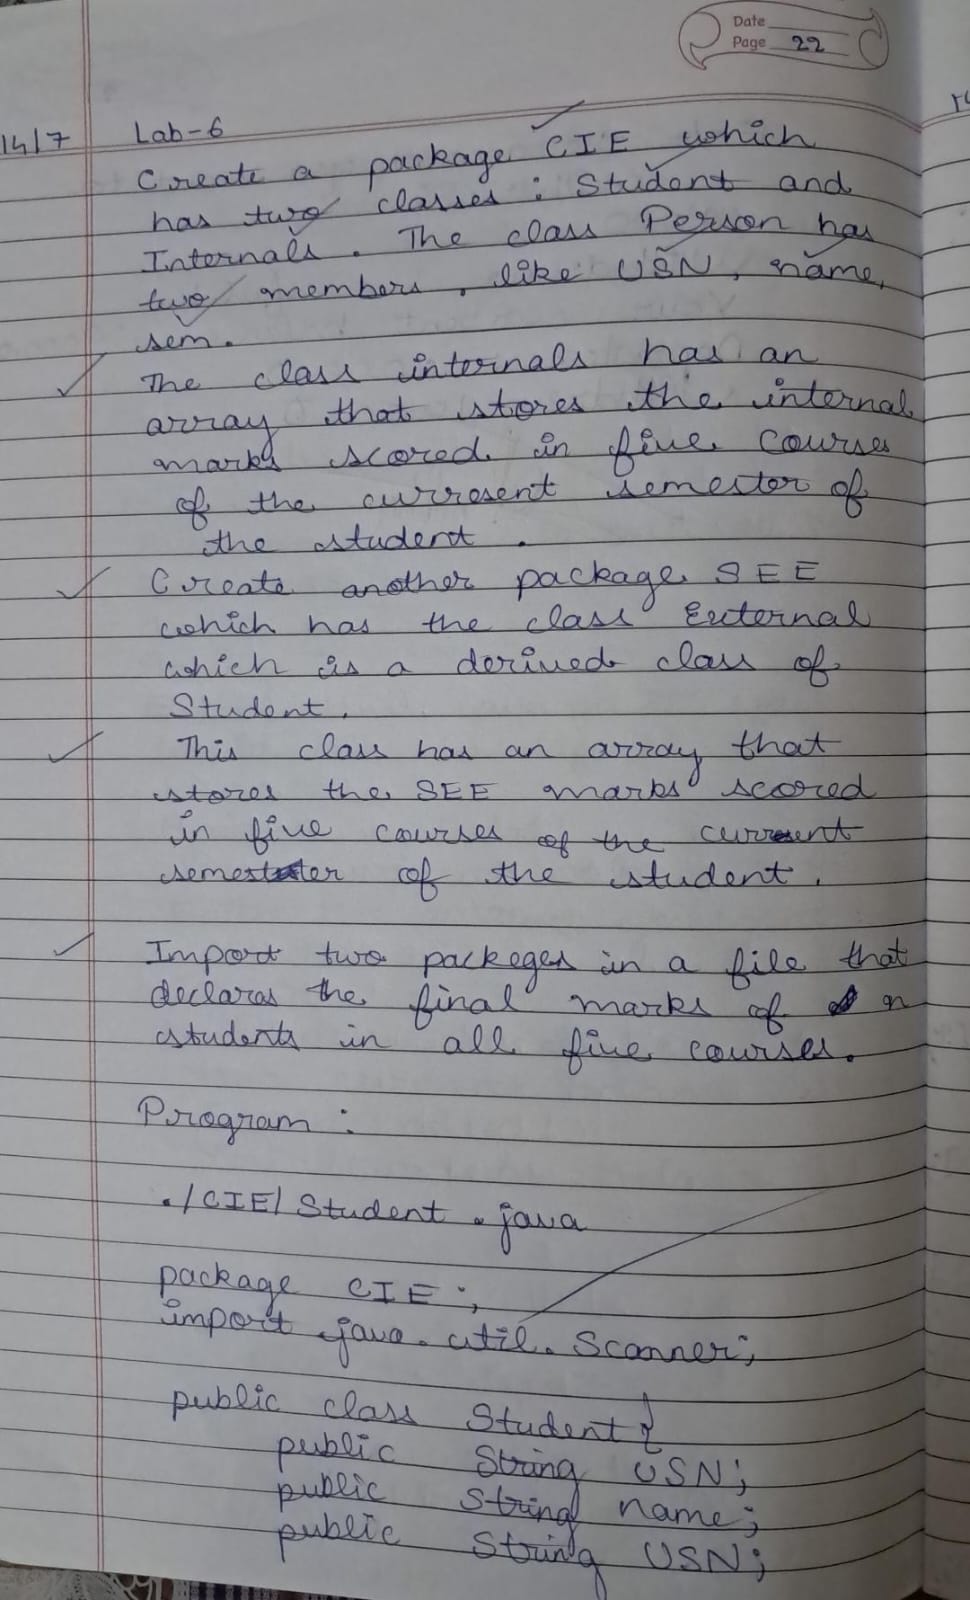 Date
Page 22
14/7 Lab-6
Create a package CIE which
has two classes : Student and
Internals. The class Person has
two members, like USN, name,
sem.
The class internals has an
array that stores the internal
marks scored in five courses
of the curresent semester of
the student.
Create another package SEE
which has the class External
which is a derived class of
Student.
This class has an array that
stores the SEE marks scored
in five courses of the current
semester of the student.
Import two packeges in a file that
declares the final marks of n
students in all five courses.
Program :
./CIE/Student.java
package CIE;
import java.util.Scanner;
public class Student {
public String USN;
public String name;
public String USN;